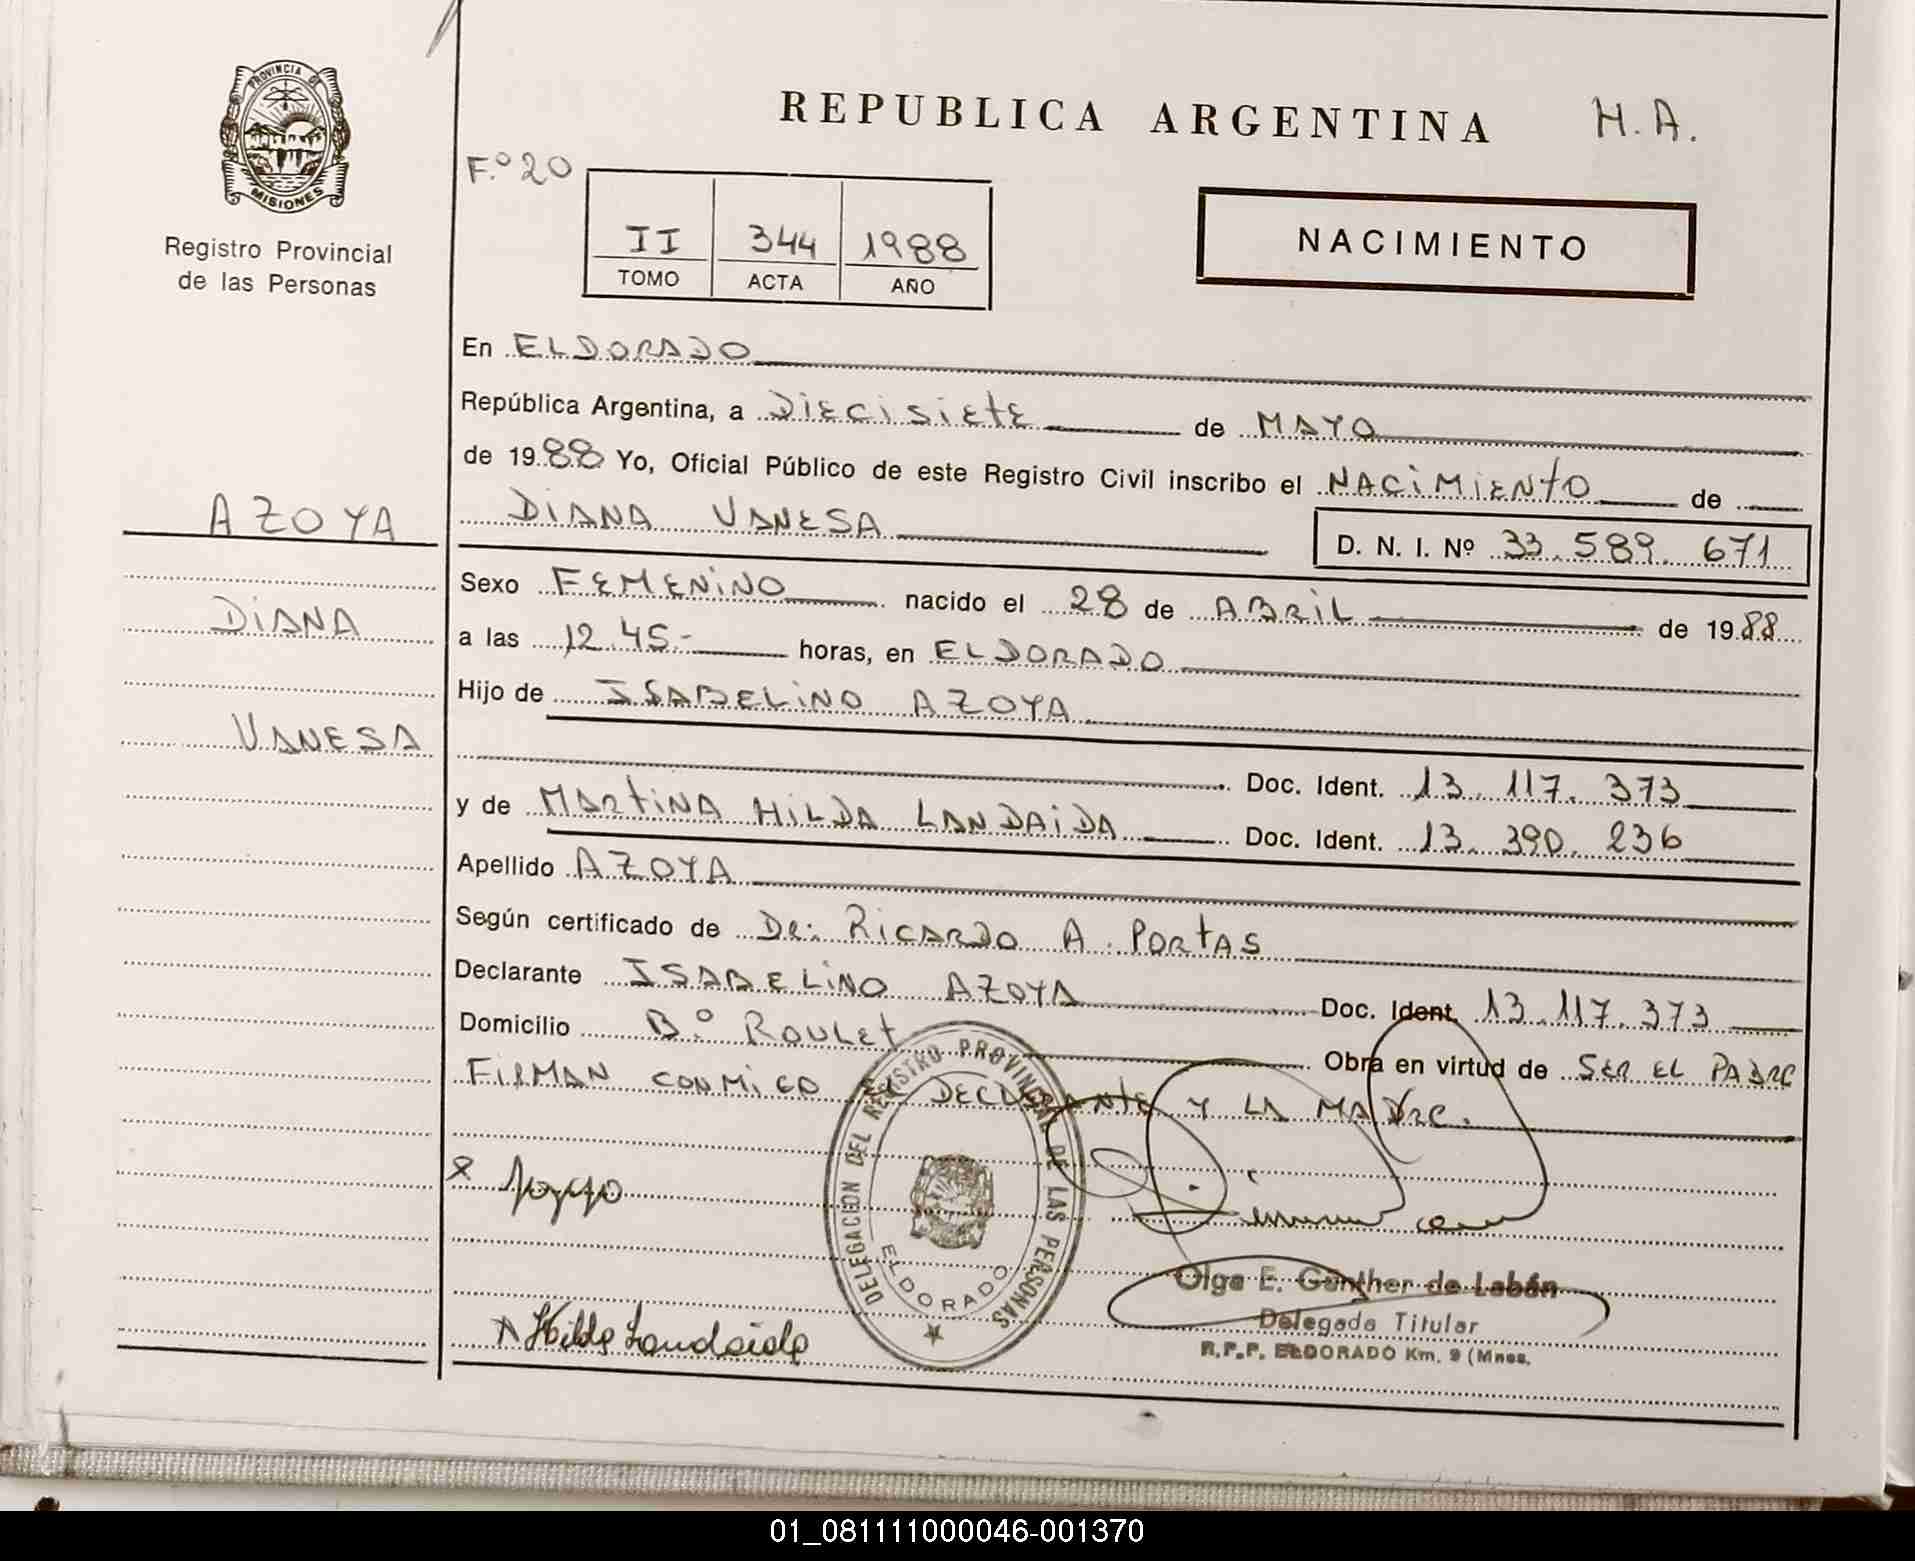 REPUBLICA ARGENTINA H.A.
PROVINCIA DE
MISIONES
Registro Provincial
de las Personas
F.º 20
II 344 1988
TOMO ACTA AÑO
NACIMIENTO
En ELDORADO
República Argentina, a DIECISIETE de MAYO
de 1988 Yo, Oficial Público de este Registro Civil inscribo el NACIMIENTO de
AZOYA
DIANA VANESA D. N. I. Nº 33.589.671
Sexo FEMENINO nacido el 28 de ABRIL de 1988
DIANA
a las 12.45.- horas, en ELDORADO
Hijo de ISABELINO AZOYA
VANESA
Doc. Ident. 13.117.373
y de MARTINA HILDA LANDAIDA Doc. Ident. 13.390.236
Apellido AZOYA
Según certificado de DR: RICARDO A. PORTAS
Declarante ISABELINO AZOYA Doc. Ident. 13.117.373
Domicilio B.º ROULET Obra en virtud de SER EL PADRE
FIRMAN CONMIGO EL DECLARANTE Y LA MADRE.
DELEGACION DEL REGISTRO PROVINCIAL DE LAS PERSONAS
ELDORADO
Olga E. Günther de Labán
Delegada Titular
R.P.P. ELDORADO Km. 9 (Mnes.
Hilda Landaida
01_081111000046-001370